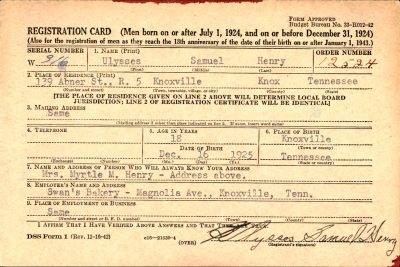 Form Approved
Budget Bureau No. 33-R012-42
REGISTRATION CARD (Men born on or after July 1, 1924, and on or before December 31, 1924)
(Also for the registration of men as they reach the 18th anniversary of the date of their birth on or after January 1, 1943.)
SERIAL NUMBER 1. NAME (Print) ORDER NUMBER
W Ulysses Samuel Henry 12524
(First) (Middle) (Last)
2. PLACE OF RESIDENCE (Print)
139 Abner St., R. 5 Knoxville Knox Tennessee
(Number and street) (Town, township, village, or city) (County) (State)
[THE PLACE OF RESIDENCE GIVEN ON LINE 2 ABOVE WILL DETERMINE LOCAL BOARD
JURISDICTION; LINE 2 OF REGISTRATION CERTIFICATE WILL BE IDENTICAL]
3. MAILING ADDRESS
Same
[Mailing address if other than place indicated on line 2. If same, insert word same]
4. TELEPHONE 5. AGE IN YEARS 6. PLACE OF BIRTH
18 Knoxville
DATE OF BIRTH (Town or county)
Dec. 16 1925 Tennessee
(Exchange) (Number) (Mo.) (Day) (Yr.) (State or country)
7. NAME AND ADDRESS OF PERSON WHO WILL ALWAYS KNOW YOUR ADDRESS
Mrs. Myrtle M. Henry - Address above.
8. EMPLOYER'S NAME AND ADDRESS
Swan's Bakery - Magnolia Ave., Knoxville, Tenn.
9. PLACE OF EMPLOYMENT OR BUSINESS
Same
(Number and street or R. F. D. number) (Town) (County) (State)
I AFFIRM THAT I HAVE VERIFIED ABOVE ANSWERS AND THAT THEY ARE TRUE.
DSS Form 1 (Rev. 11-16-42) (OVER) Ulysses Samuel Henry
(Registrant's signature)